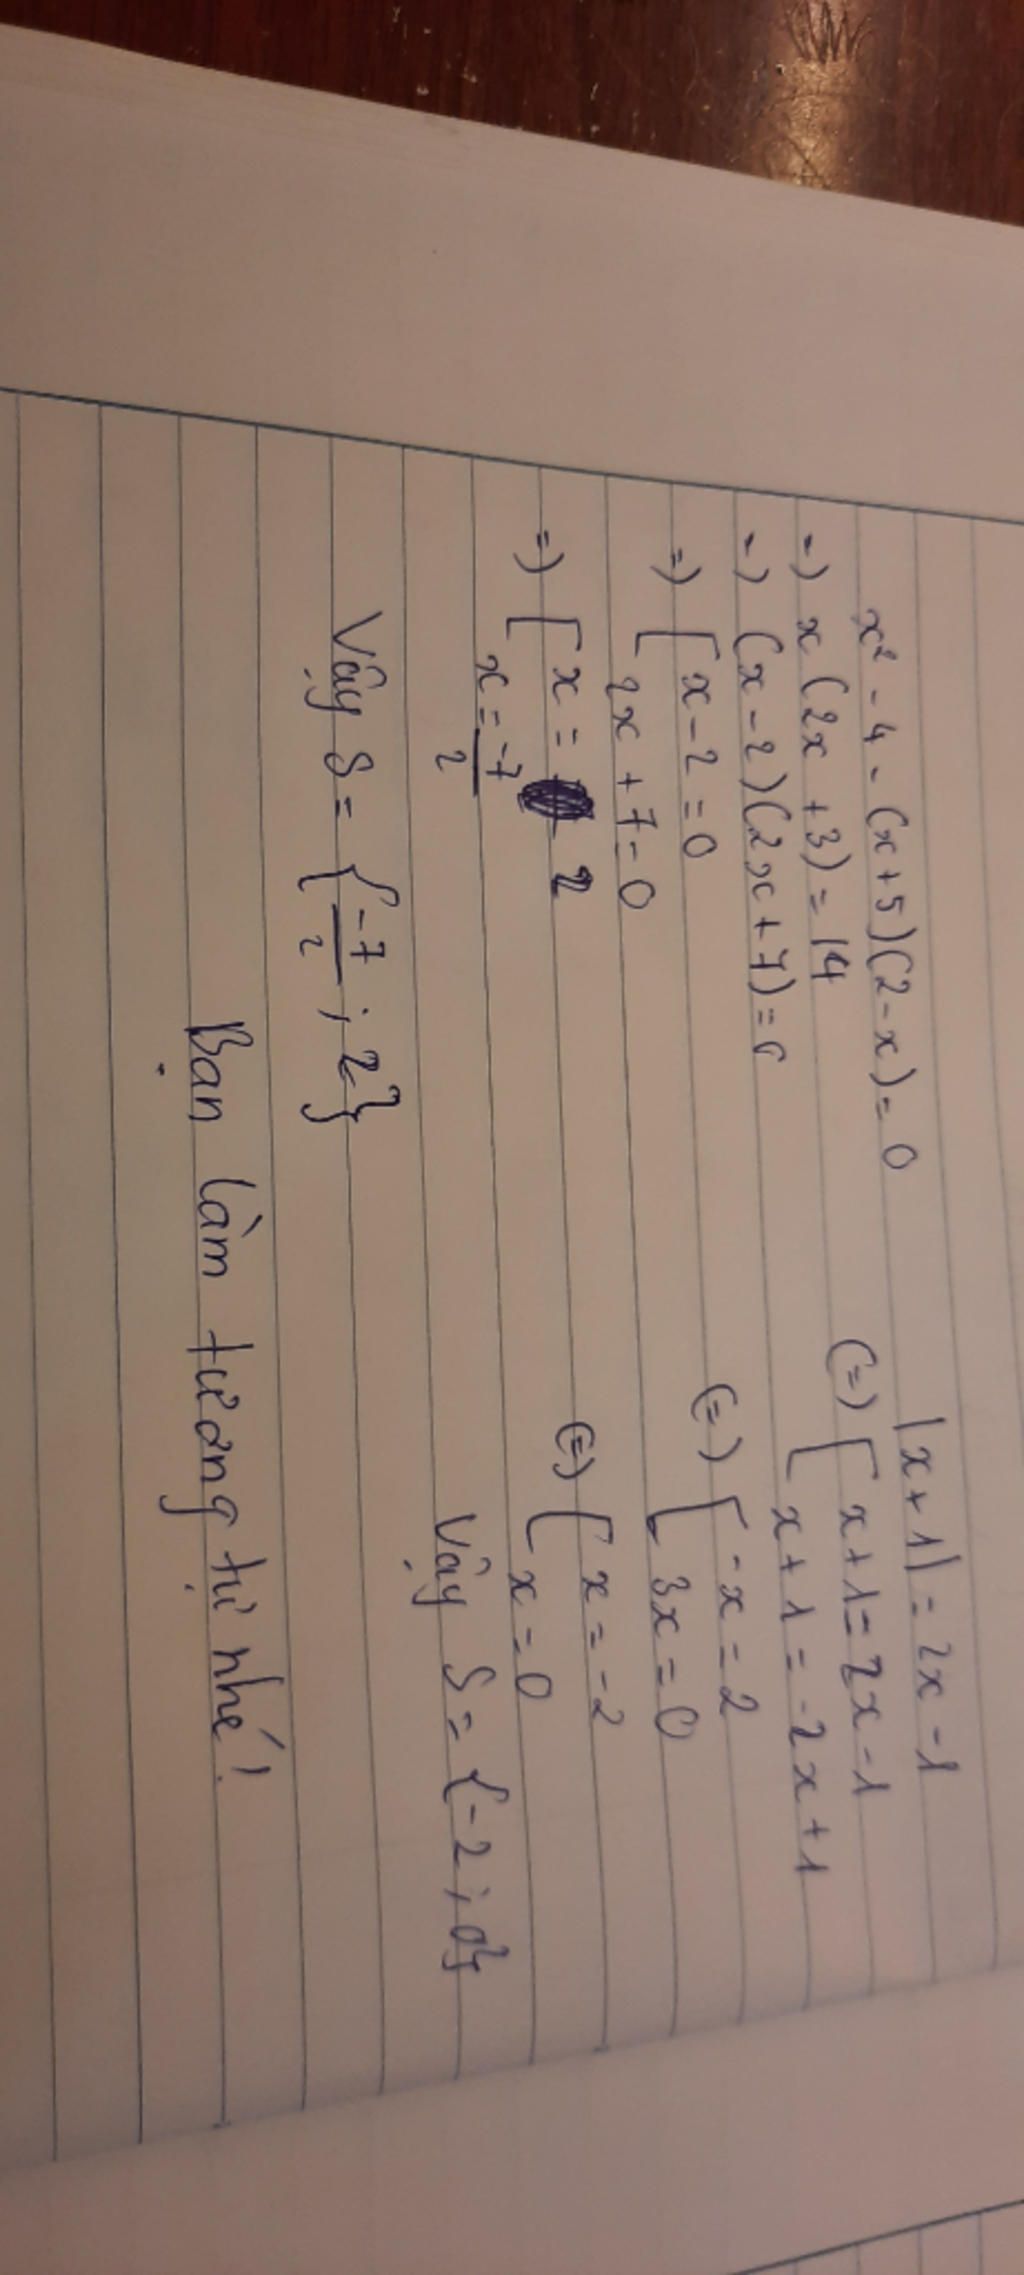 x² - 4 - (x+5)(2-x) = 0
=) x(2x+3) = 14
=) (x-2)(2x+7) = 0
=) [ x-2 = 0
2x+7 = 0
=) [ x = 2
x = -7/2
Vậy S = {-7/2 ; 2}
|x+1| = 2x-1
(=) [ x+1 = 2x-1
x+1 = -2x+1
(=) [ -x = 2
3x = 0
(=) [ x = -2
x = 0
Vậy S = {-2 ; 0}
Bạn làm tương tự nhé!